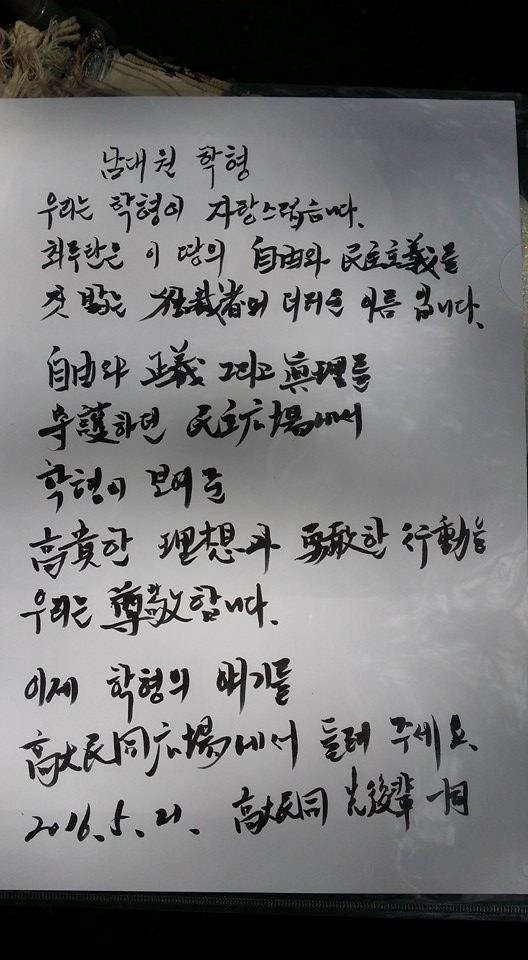 남대원 학형
우리는 학형이 자랑스럽습니다.
최루탄은 이 땅의 自由와 民主主義를
짓 밟는 独裁者의 더러운 이름 입니다.
自由와 正義 그리고 眞理를
守護하던 民主広場에서
학형이 보여준
高貴한 理想과 勇敢한 行動을
우리는 尊敬합니다.
이제 학형의 얘기를
高大民同広場에서 들려 주세요.
2016. 5. 21. 高大民同 先後輩 一同